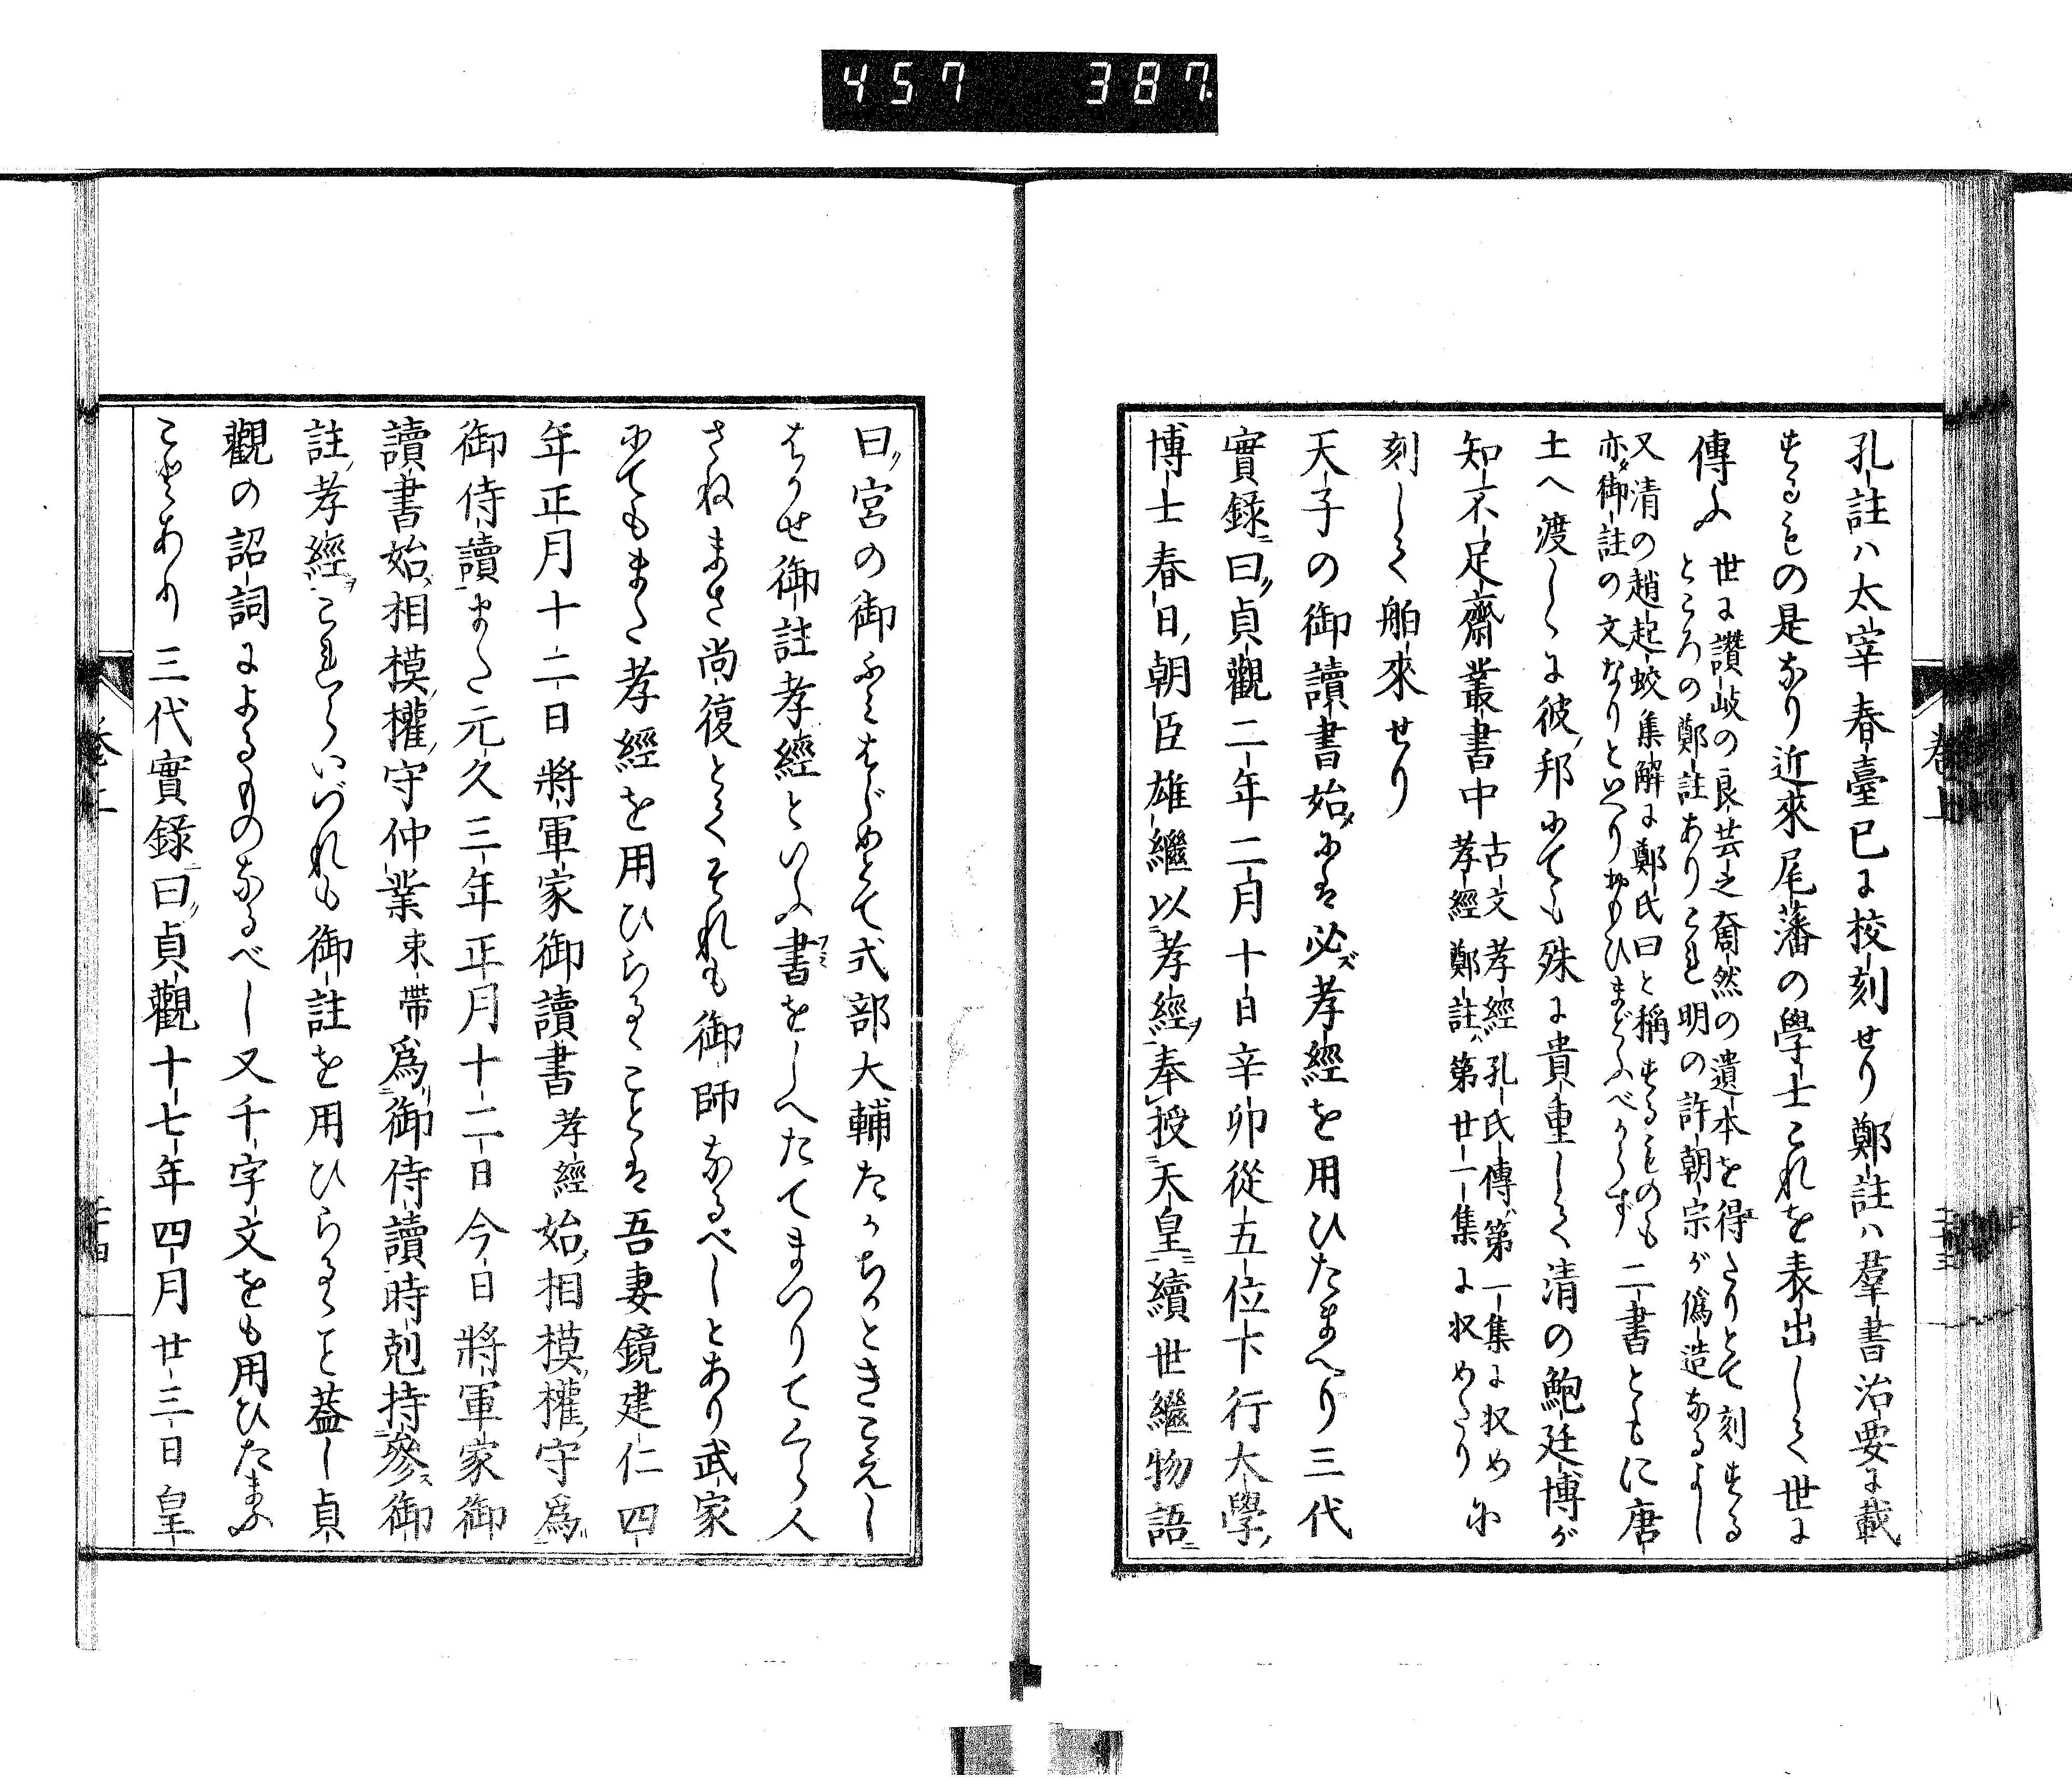 457 387
孔註ハ太宰春臺已に校刻せり鄭註ハ羣書治要に載
するもの是なり近來尾藩の學士これを表出して世に
傳ふ
世に讚岐の良芸之奝然の遺本を得たりとて刻する
ところの鄭註ありこれ明の許朝宗が僞造なるよし
又清の趙起蛟集解に鄭氏曰と稱するものも
亦御註の文なりといへりおもひまどふべからず
二書ともに唐
土へ渡しゝに彼ノ邦にても殊に貴重して清の鮑廷博が
知不足齋叢書中
古文孝經孔氏傳ハ第一集に收め
孝經鄭註ハ第廿一集に收めたり
に
刻して舶來せり
天子の御讀書始メにハ必ズ孝經を用ひたまへり三代
實錄ニ曰ク貞觀二年二月十日辛卯從五位下行大學ノ
博士春日ノ朝臣雄繼以孝經ヲ奉授天皇ニ續世繼物語ニ
卷上
二十三
曰ク宮の御ふミはじめとて式部大輔たかちかときこえし
はかせ御註孝經といふ書フミをしへたてまつりてくら人
さねまさ尚復とてそれも御師なるべしとあり武家
にてもまた孝經を用ひらるゝことハ吾妻鏡建仁四
年正月十二日將軍家御讀書孝經始メ相模ノ權ノ守爲
御侍讀また元久三年正月十二日今日將軍家御
讀書始メ相模ノ權ノ守仲業束帶爲リ御侍讀時剋持參ス御
註ノ孝經ヲこれらいづれも御註を用ひらるゝこと蓋し貞
觀の詔詞によるものなるべし又千字文をも用ひたまふ
ことあり三代實錄ニ曰ク貞觀十七年四月廿三日皇